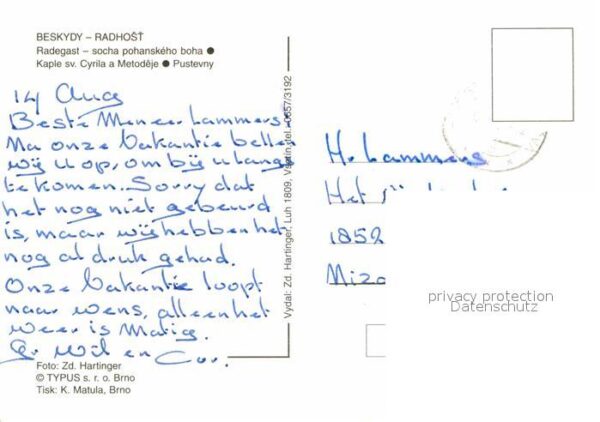 BESKYDY – RADHOŠŤ
Radegast – socha pohanského boha ●
Kaple sv. Cyrila a Metoděje ● Pustevny
14 Aug
Beste Meneer Lammers.
Na onze Vakantie bellen
wij u op, om bij u langs
te komen. Sorry dat
het nog niet gebeurd
is, maar wij hebben het
nog al druk gehad.
Onze Vakantie loopt
naar wens, alleen het
weer is Matig.
Gr Wil en Cor.
Foto: Zd. Hartinger
© TYPUS s. r. o. Brno
Tisk: K. Matula, Brno
Vydal: Zd. Hartinger, Luh 1809, Vsetín, tel. 0657/3192
H. Lammers
Het
1852
privacy protection
Datenschutz